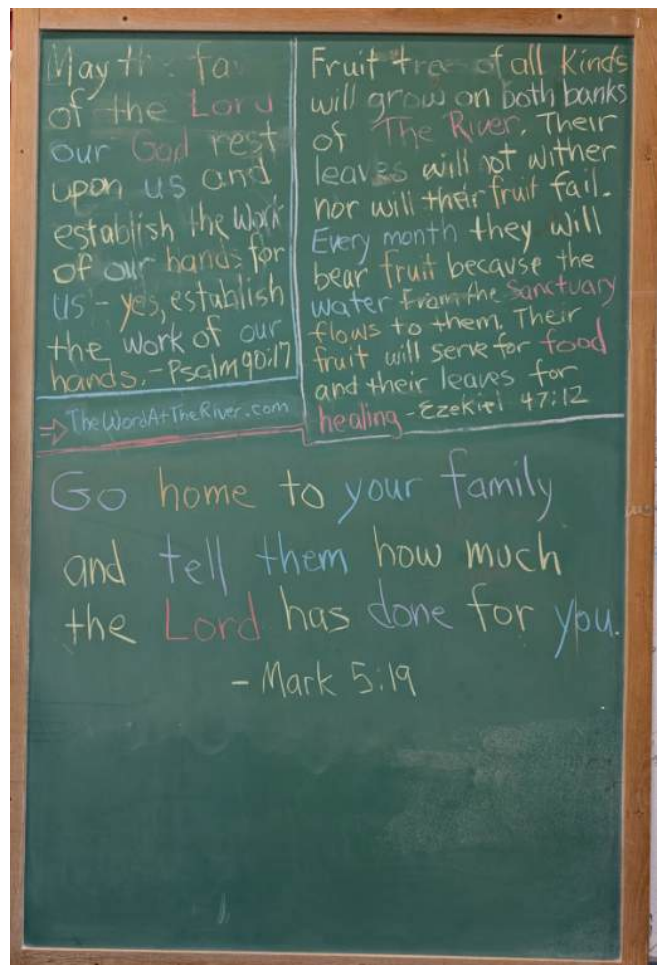 May th fa
of the Lord
our God rest
upon us and
establish the work
of our hands for
us - yes, establish
the work of our
hands. - Psalm 90:17
→ TheWordAtTheRiver.com
Fruit trees of all kinds
will grow on both banks
of The River. Their
leaves will not wither
nor will their fruit fail.
Every month they will
bear fruit because the
water from the Sanctuary
flows to them. Their
fruit will serve for food
and their leaves for
healing - Ezekiel 47:12
Go home to your family
and tell them how much
the Lord has done for you.
- Mark 5:19